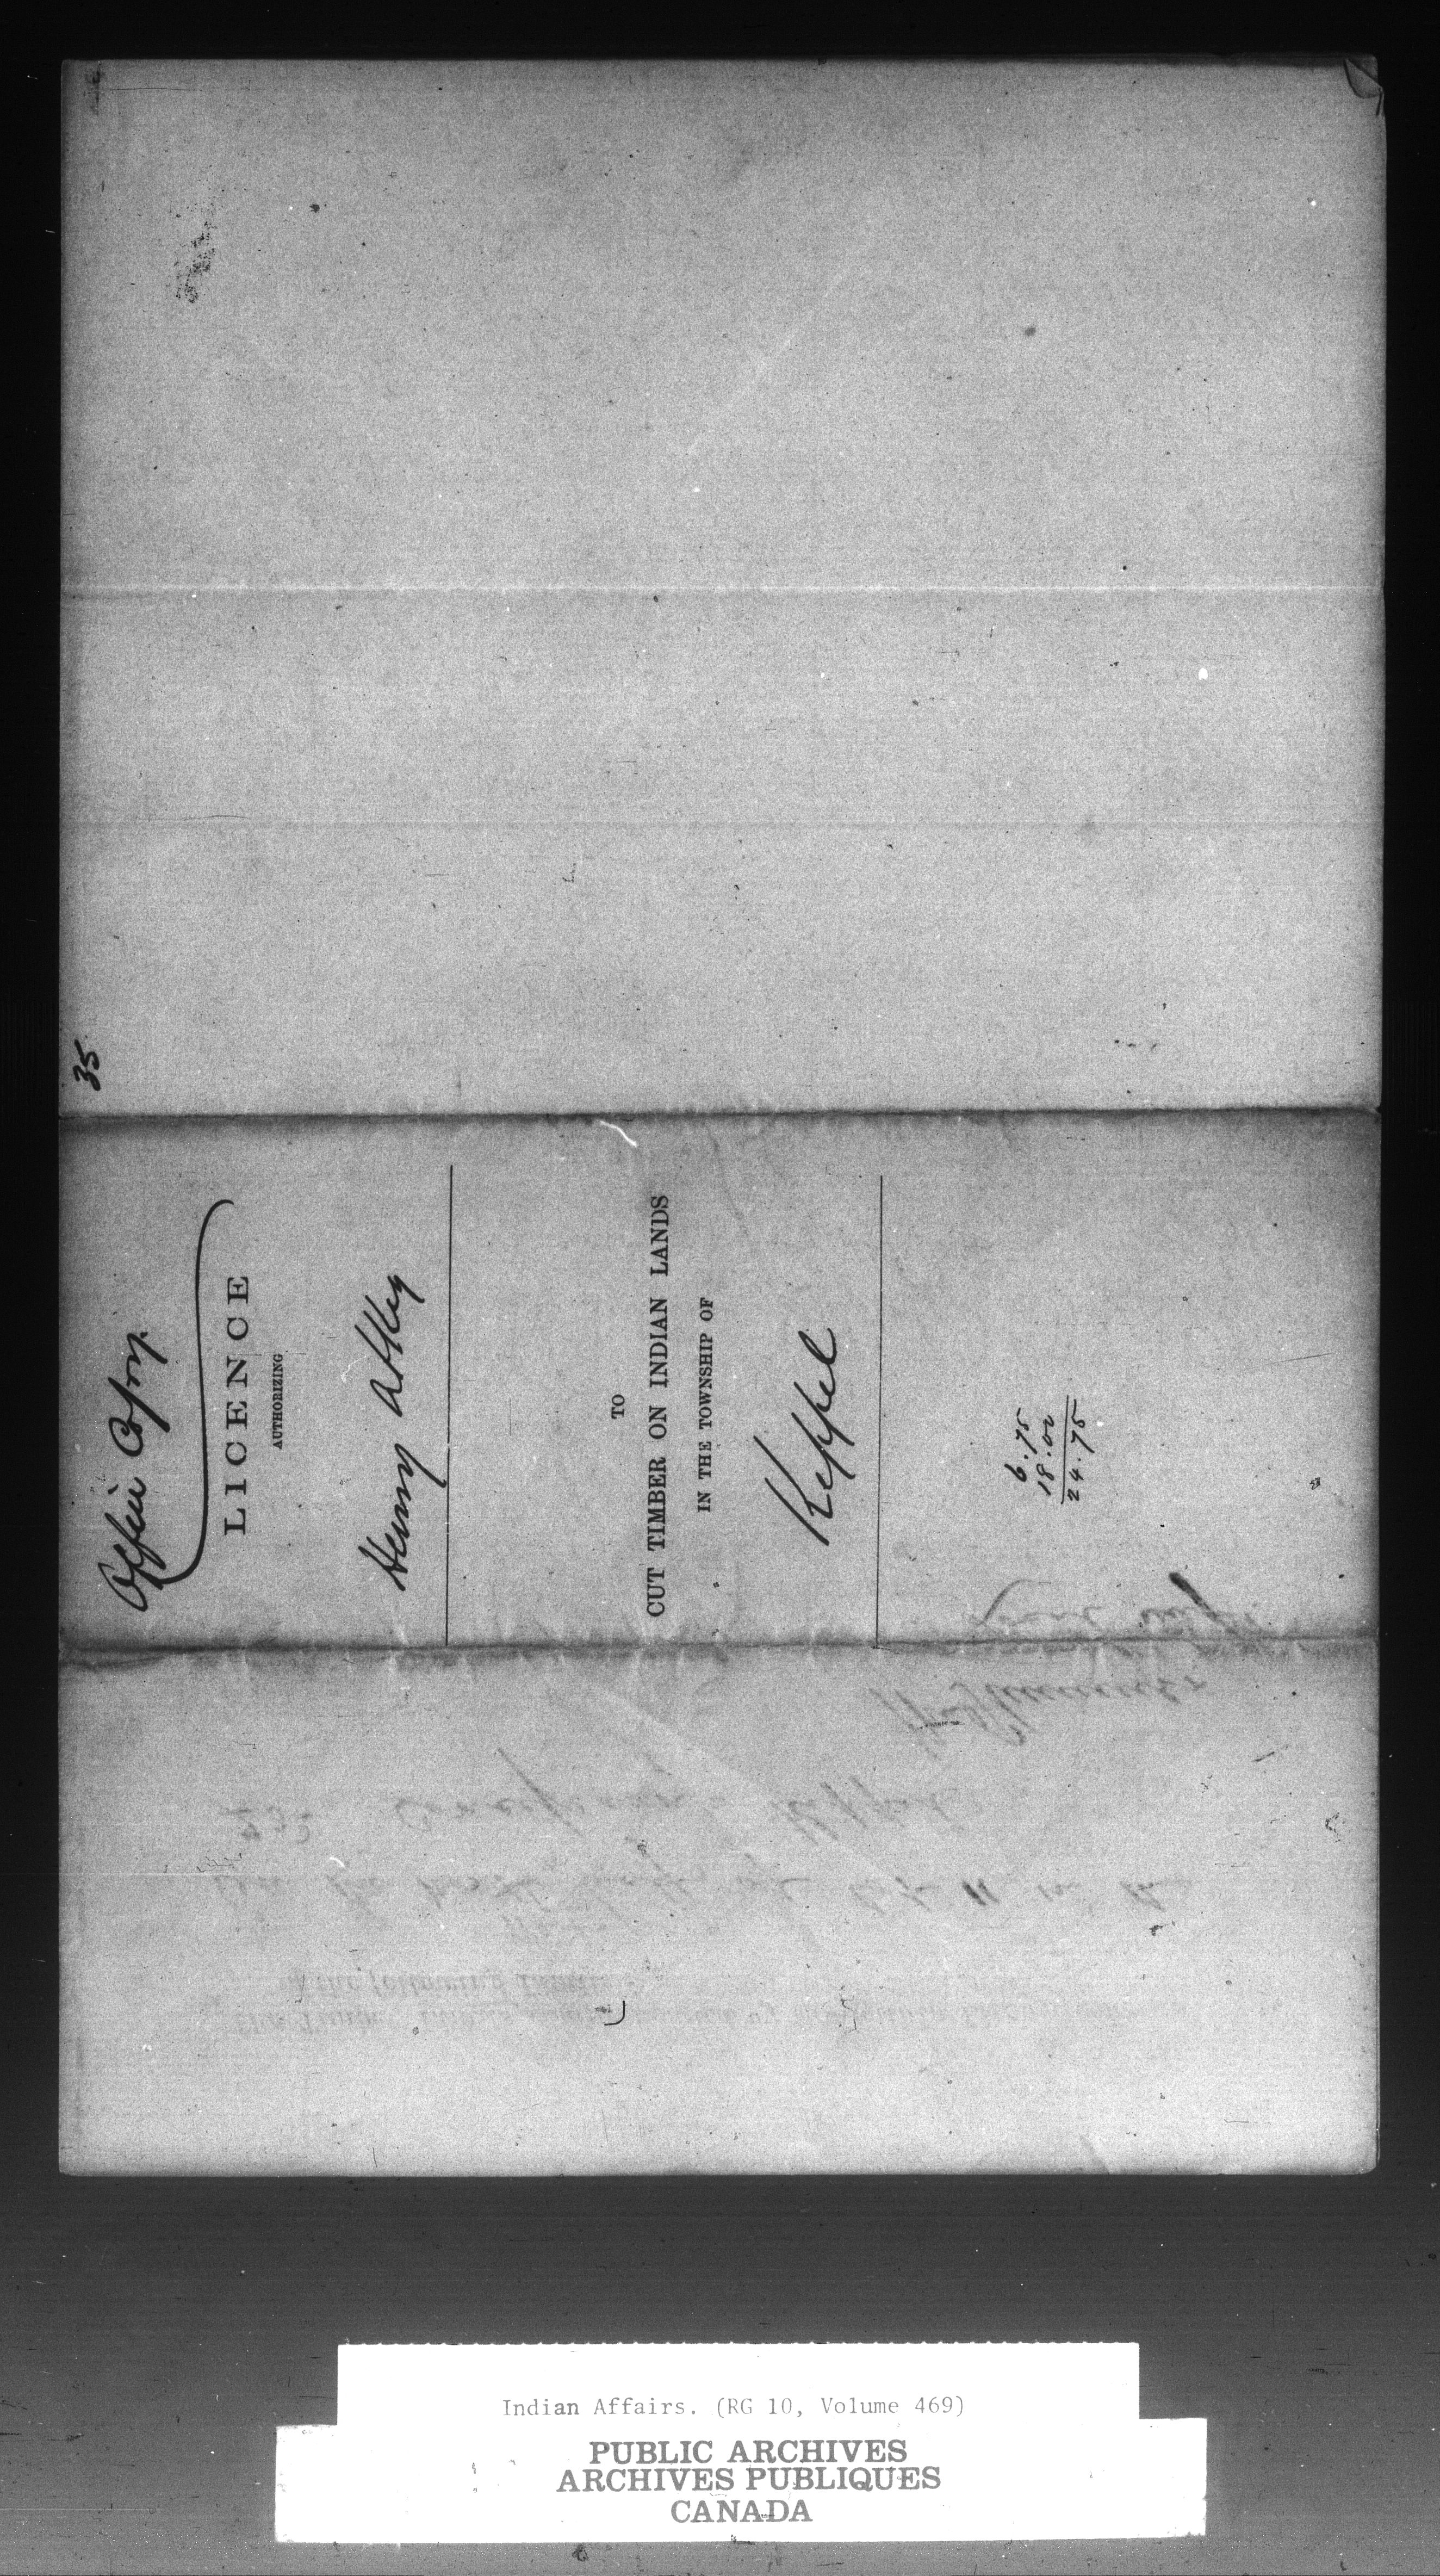 35
Office Copy.
LICENCE
AUTHORIZING
Henry
TO
CUT TIMBER ON INDIAN LANDS
IN THE TOWNSHIP OF
Keppel
6.75
18.00
24.75
Indian Affairs. (RG 10, Volume 469)
PUBLIC ARCHIVES
ARCHIVES PUBLIQUES
CANADA